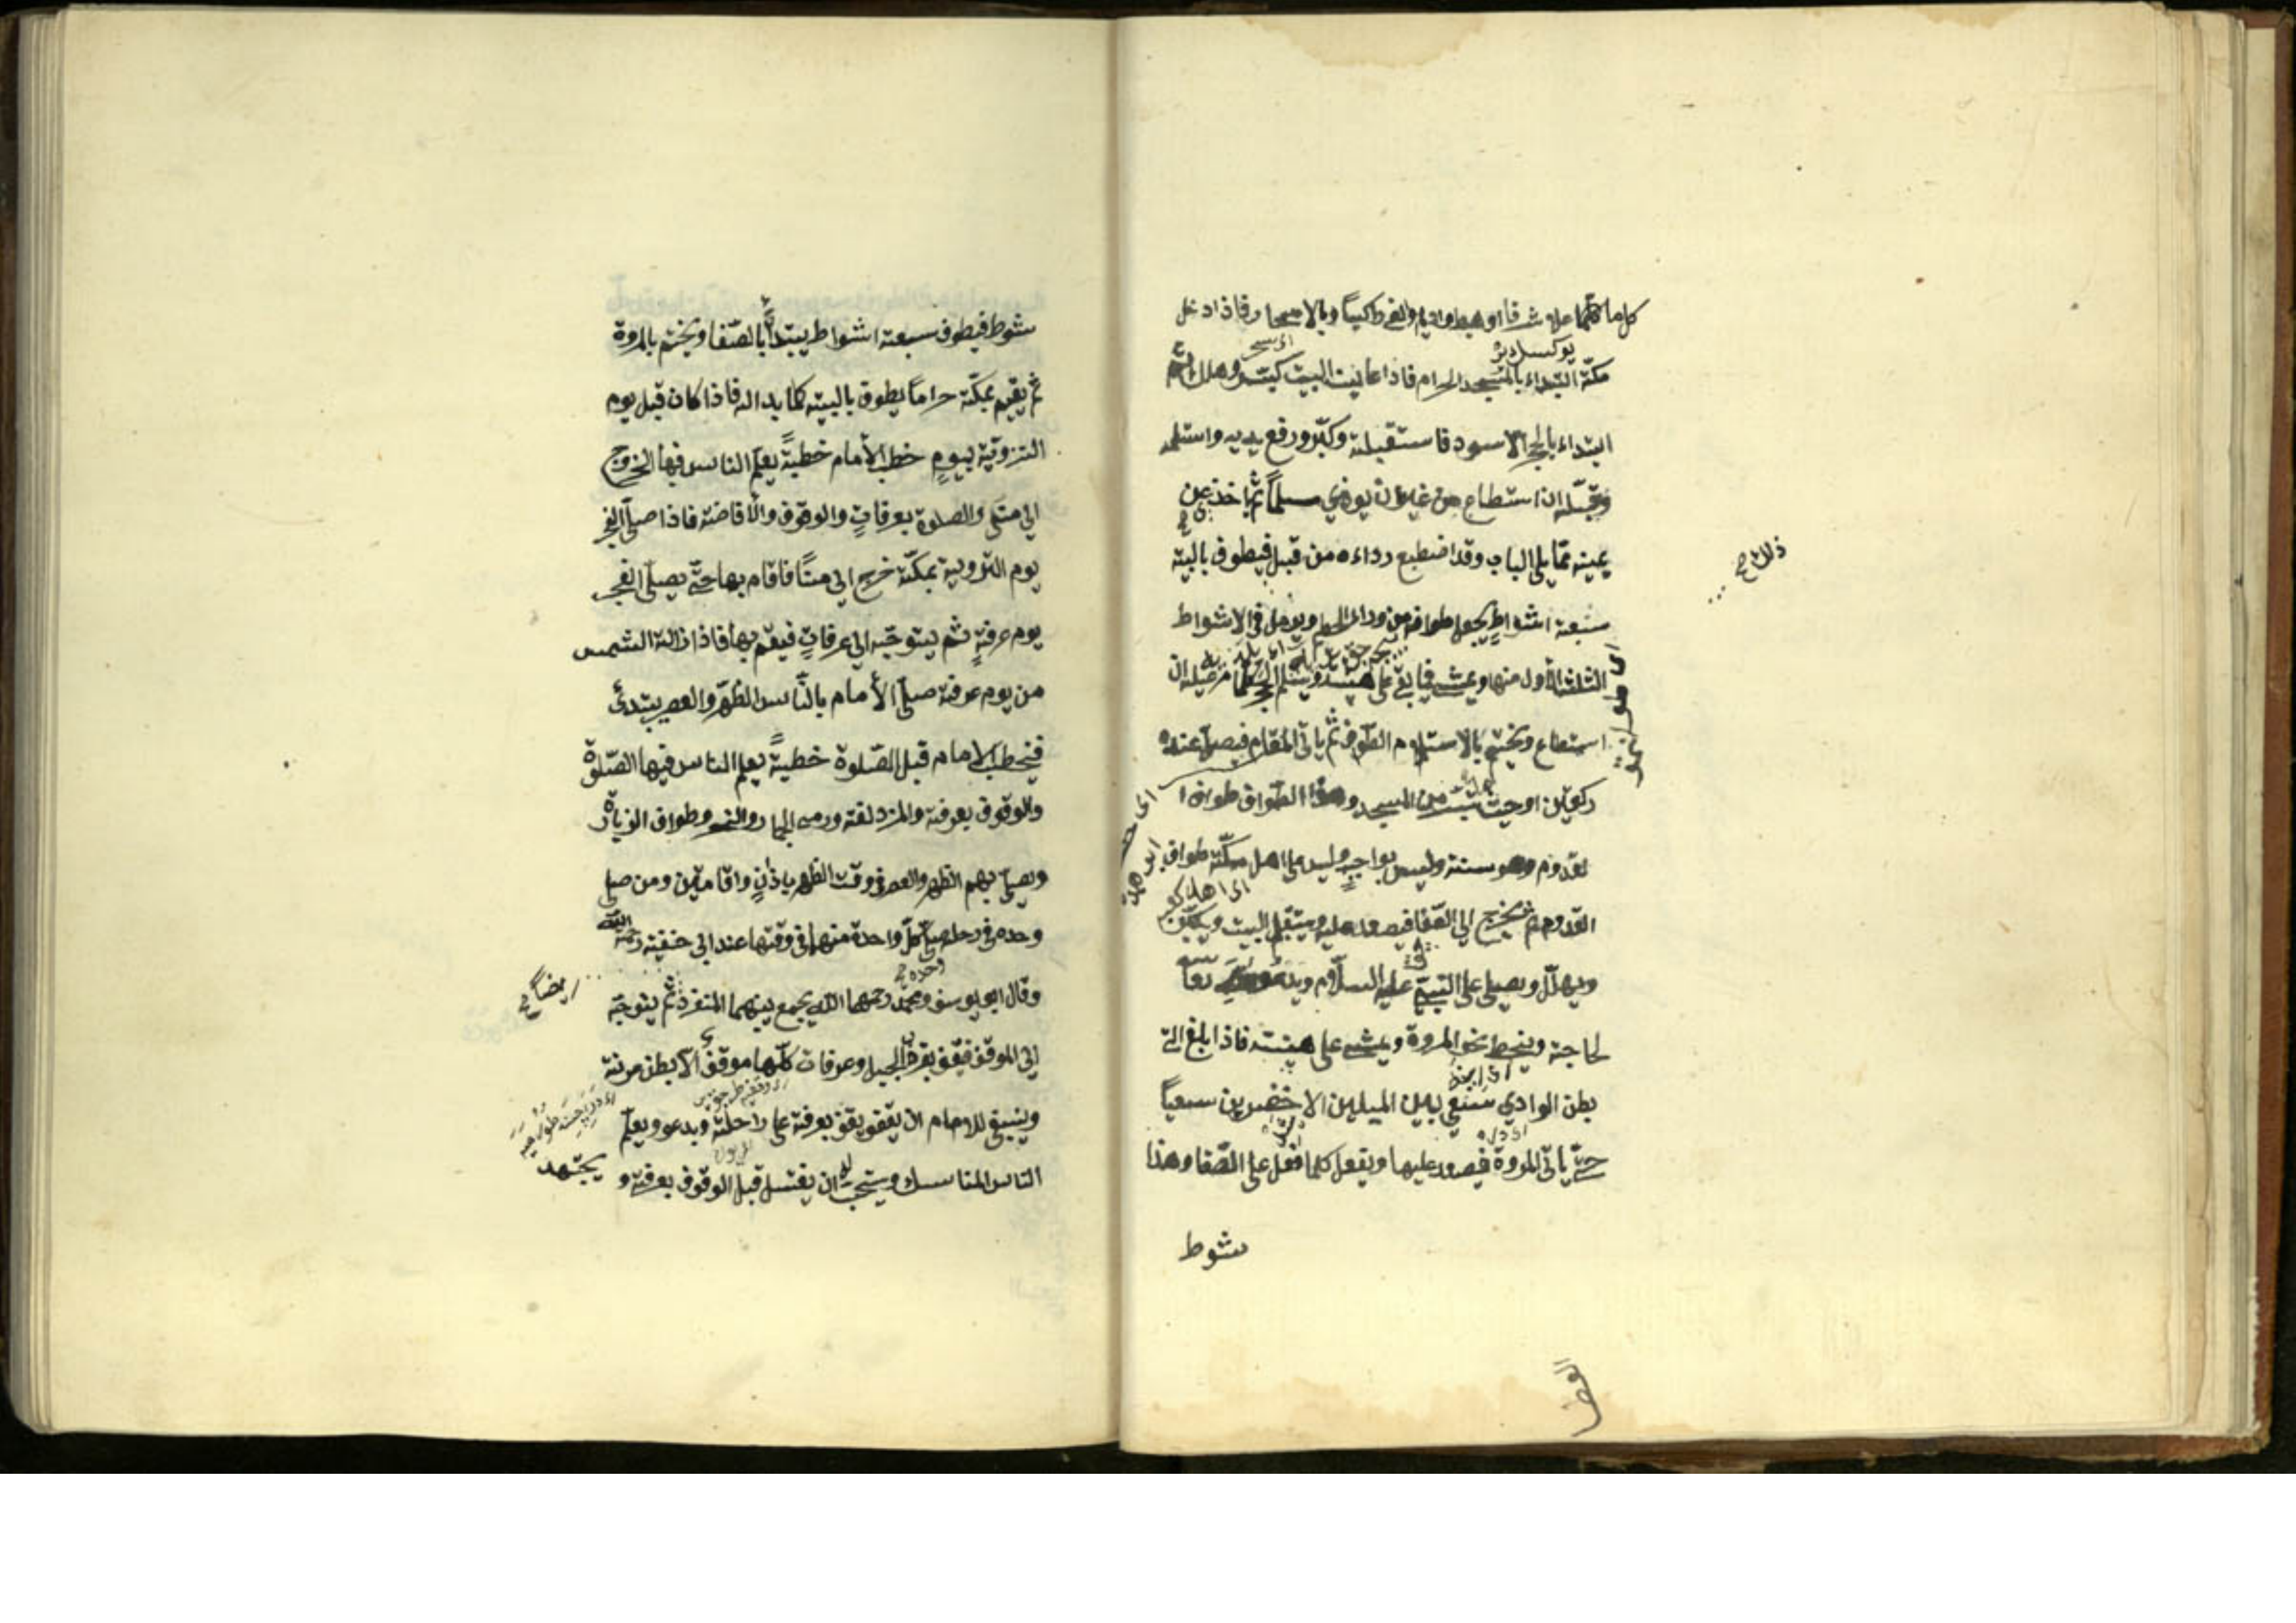 كلما علا شرفا او هبط واديا ولقي ركبا وبالاسحار فاذا دخل
مكة ابتداء بالمسجد الحرام فاذا عاين البيت كبّر وهلل ثم
ابتداء بالحجر الاسود فاستقبله وكبّر ورفع يديه واستلمه
وقبّله ان استطاع من غير ان يوذي مسلماً ثم اخذ عن
يمينه ممّا يلي الباب وقد اضطبع رداءه من قبل فيطوف بالبيت
ذلك
سبعة اشواط يجعل طوافه من وراء الحطيم ويرمل في الاشواط
الثلثة الأول منها ويمشي فيما بقي على هينته ويستلم الحجر كلما مر به ان
استطاع ويختم بالاستلام الطواف ثم ياتي المقام فيصلي عنده
ركعتين او حيث تيسر من المسجد وهذا الطّواف طواف ا
لقدوم وهو سنة وليس بواجبٍ وليس على اهل مكّة طواف
القدوم ثم يخرج الي الصّفا فيصعد عليه ويستقبل البيت ويكبّر
ويهلّل ويصلي على النبيّ عليه السلام ويدعو الله تعا
لحاجته وينحط نحو المروة ويمشي على هينته فاذا بلغ الى
بطن الوادي سعى بين الميلين الاخضرين سعياً
حتّى ياتي المروة فيصعد عليها ويفعل كلما فعل على الصّفا وهذا
شوط
شوط فيطوف سبعة اشواط يبتدأ بالصّفا ويختم بالمروة
ثم يقيم بمكّة حراماً يطوف بالبيت كلما بدا له فاذا كان قبل يوم
التروية بيومٍ خطب الأمام خطبةً يعلّم الناس فيها الخروج
الي منى والصلوة بعرفاتٍ والوقوف والأفاضة فاذا صلّى الفجر
يوم التروية بمكّة خرج الي منًا فاقام بها حتّى يصلّي الفجر
يوم عرفةٍ ثم يتوجّه الي عرفاتٍ فيقيم بها فاذا زالت الشمس
من يوم عرفة صلّى الأمام بالنّاس الظهر والعصر يبتدئ
فيخطب الامام قبل الصّلوة خطبةً يعلم الناس فيها الصّلوة
والوقوف بعرفة والمزدلفة ورمي الجمار والنحر وطواف الزيارة
ويصلي بهم الظهر والعصر في وقت الظهر باذانٍ واقامتين ومن صلى
وحده في رحله صلّى كلّ واحدة منهما في وقتها عند ابي حنيفة رحمة الله
وقال ابو يوسف ومحمّد رحمهما الله يجمع بينهما المنفرد ثم يتوجّه
ايضاً
الي الموقف فيقف بقرب الجبل وعرفات كلّها موقف الّا بطن عرنة
وينبغي للامام ان يقف بعرفة على راحلته ويدعو ويعلّم
الناس المناسك ويستحب له ان يغتسل قبل الوقوف بعرفة و يجتهد